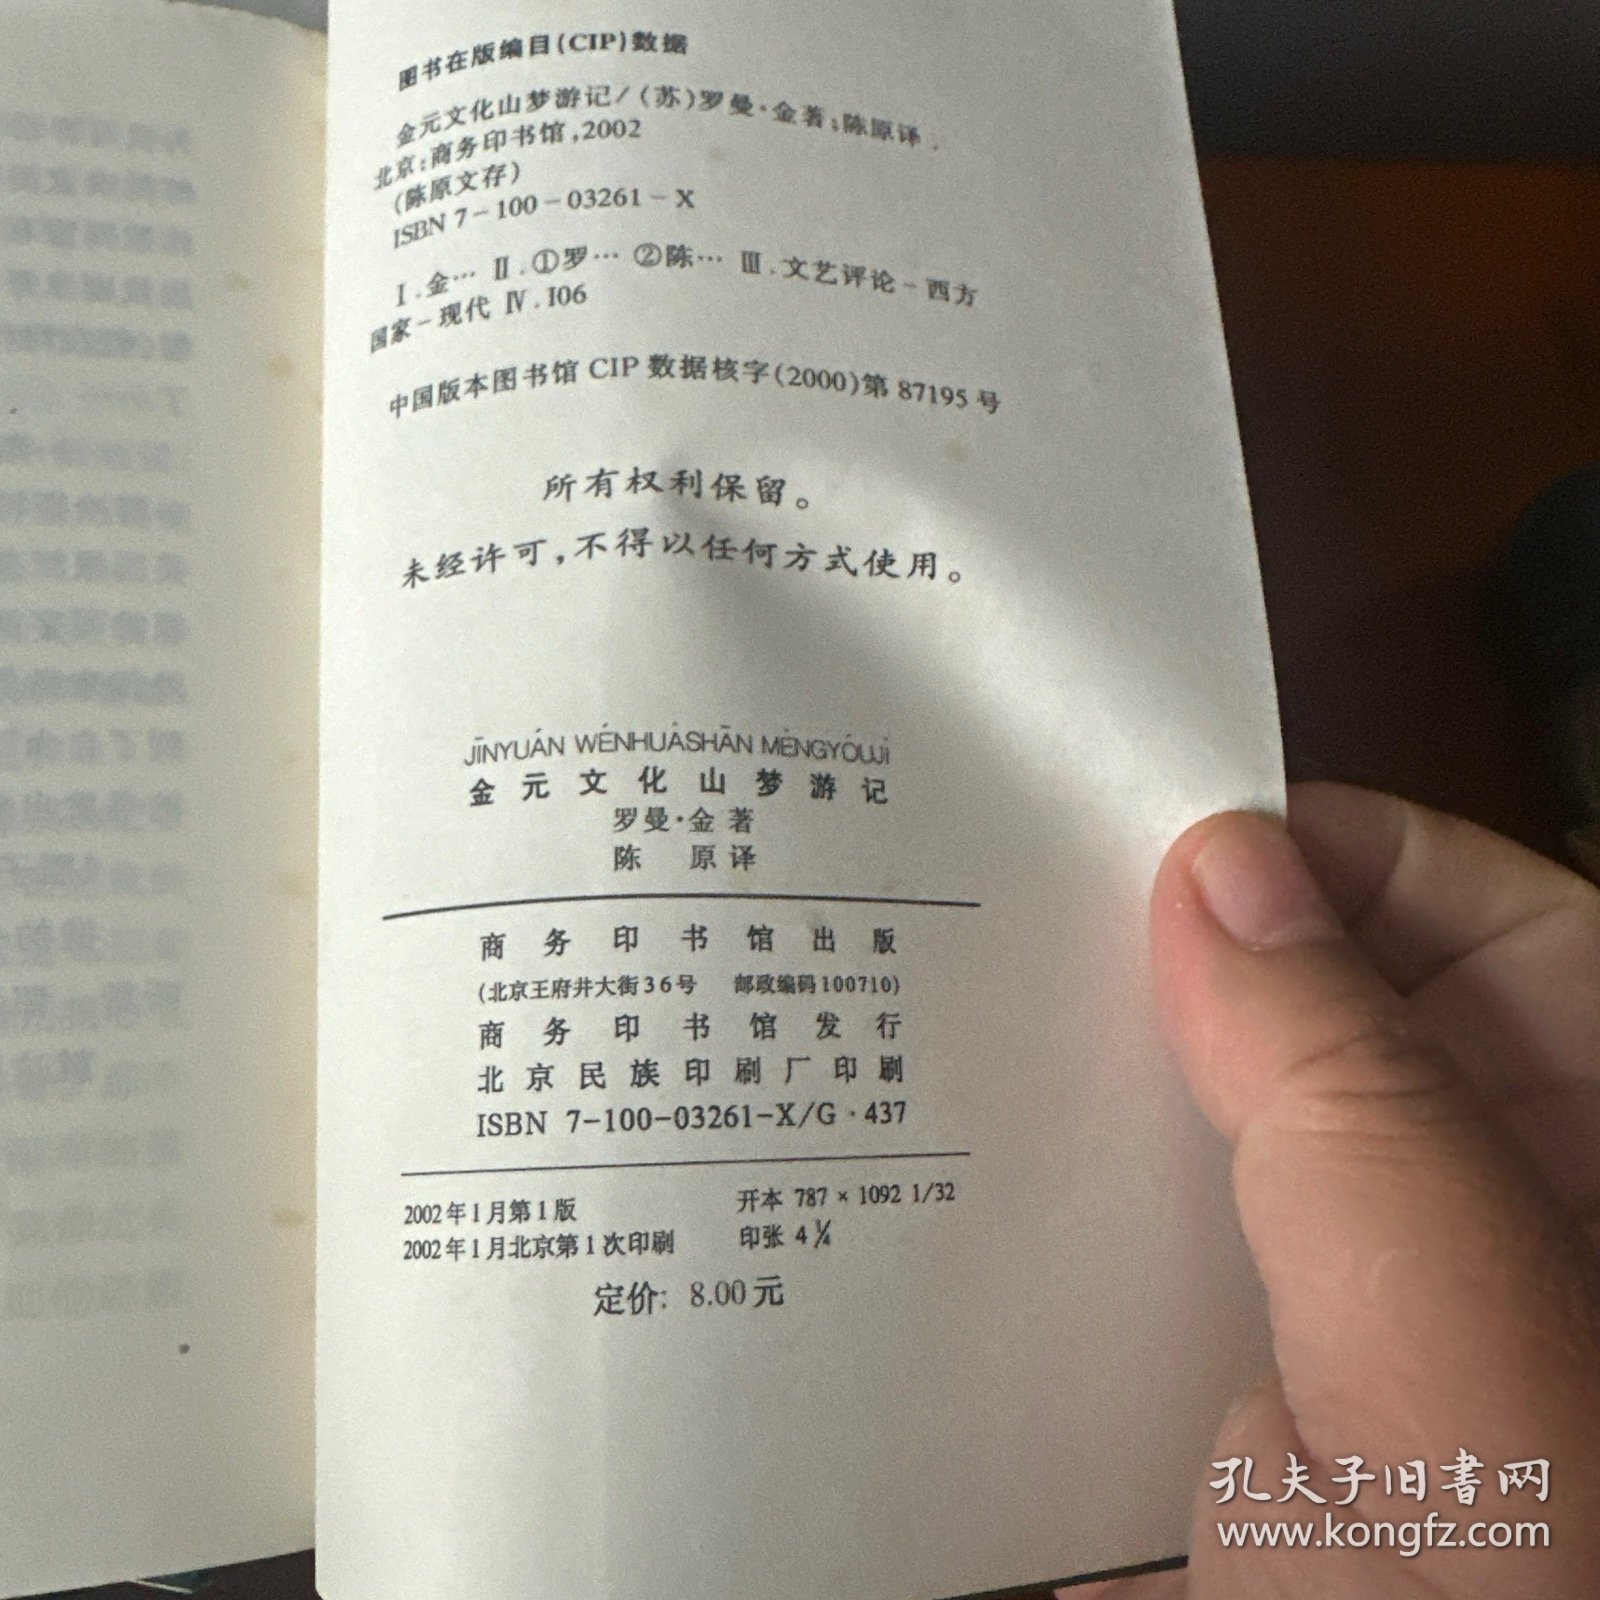 图书在版编目(CIP)数据
金元文化山梦游记/(苏)罗曼·金著;陈原译.
北京:商务印书馆,2002
(陈原文存)
ISBN 7-100-03261-X
Ⅰ.金… Ⅱ.①罗… ②陈… Ⅲ.文艺评论-西方
国家-现代 Ⅳ.I06
中国版本图书馆CIP数据核字(2000)第87195号
所有权利保留。
未经许可,不得以任何方式使用。
JĪNYUÁN WÉNHUÁSHĀN MÈNGYÓUJÌ
金元文化山梦游记
罗曼·金 著
陈 原 译
商务印书馆出版
(北京王府井大街36号 邮政编码100710)
商务印书馆发行
北京民族印刷厂印刷
ISBN 7-100-03261-X/G·437
2002年1月第1版 开本 787×1092 1/32
2002年1月北京第1次印刷 印张 4¼
定价: 8.00元
孔夫子旧书网
www.kongfz.com